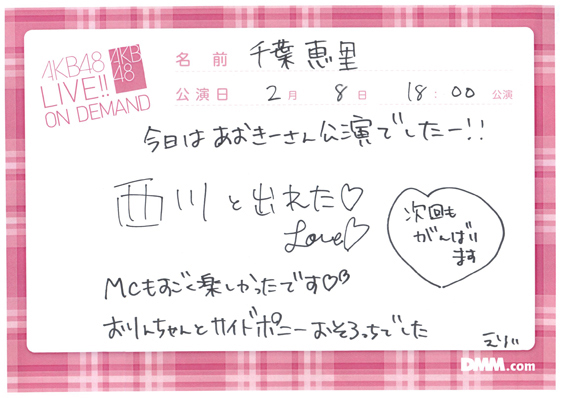 AKB48
LIVE!!
ON DEMAND
AKB
48
名前 千葉恵里
公演日 2月 8日 18:00 公演
今日はあおきーさん公演でしたー!!
西川と出れた♡
Love♡
次回も
がんばり
ます
MCもすごく楽しかったです♡
おりんちゃんとサイドポニーおそろっちでした
えりい
DMM.com